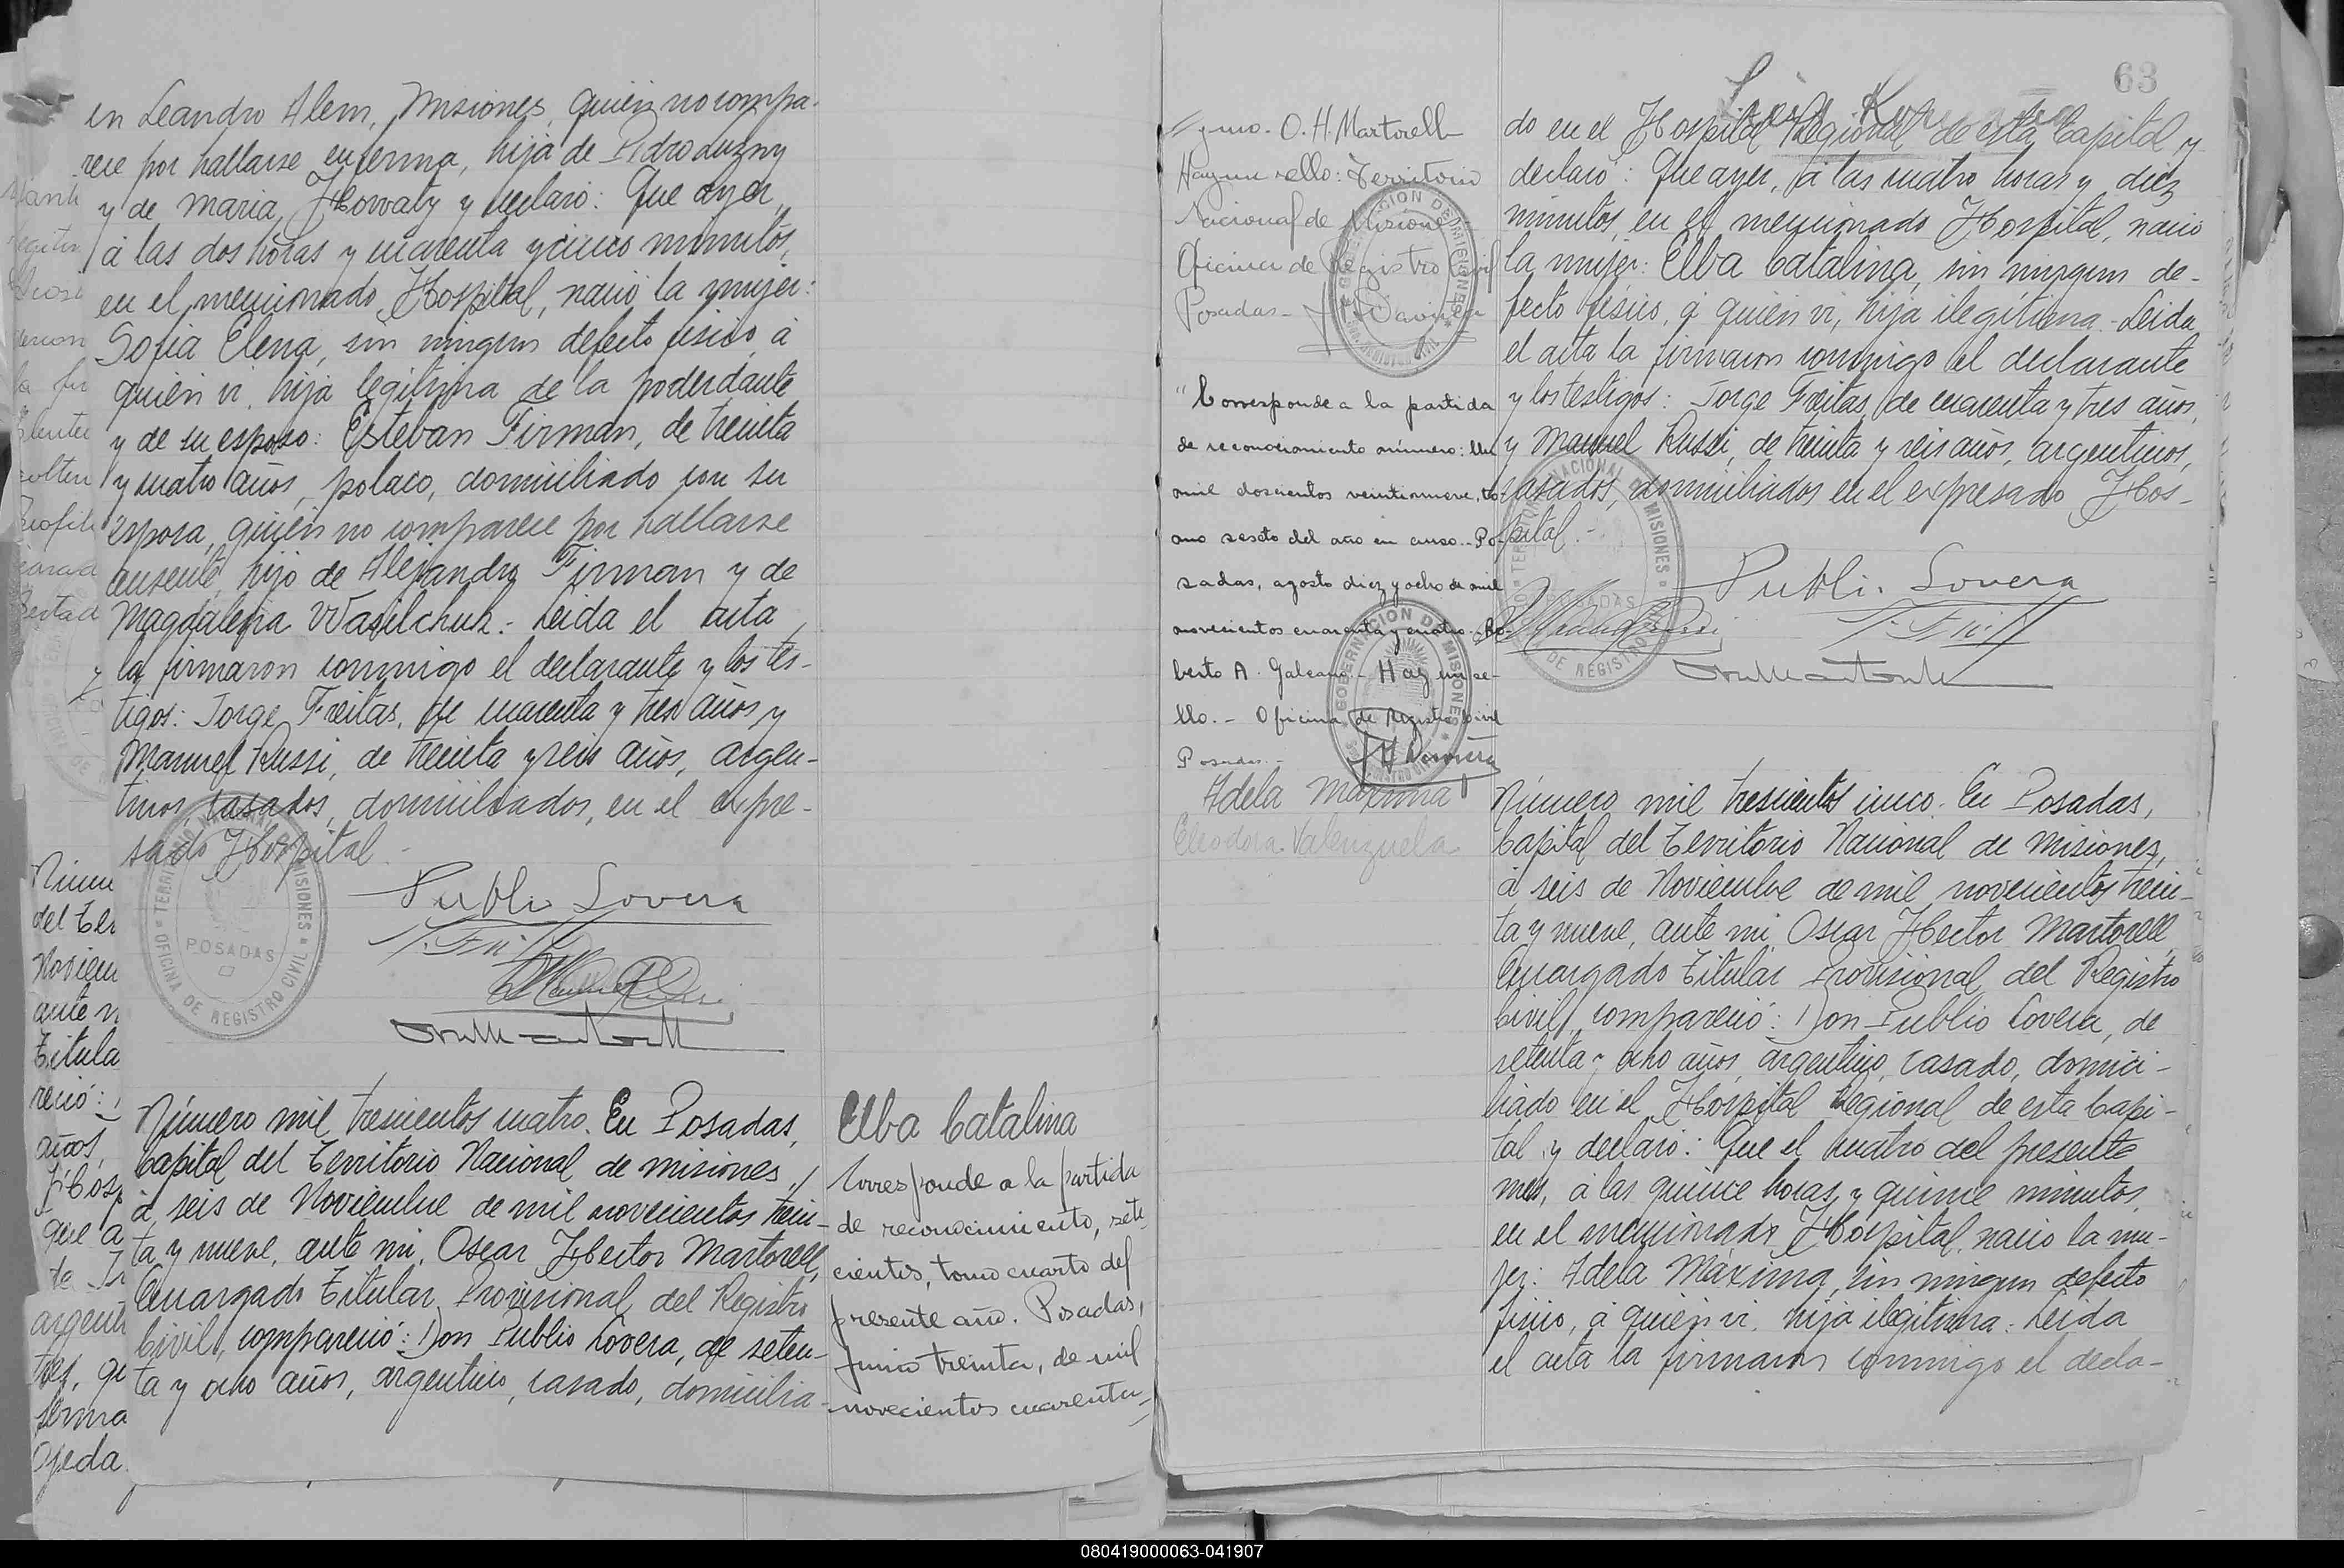 en Leandro Alem, Misiones, quién no compa-
rece por hallarse enferma, hija de Pedro Luzny
y de Maria Horvaty y declaró: Que ayer,
á las dos horas y cuarenta y cinco minutos,
en el mencionado Hospital, nació la mujer:
Sofia Elena, sin ningun defecto fisico, á
quién vi, hija legitima de la poderdante
y de su esposo: Estevan Firman, de treinta
y cuatro años, polaco, domiciliado con su
esposa, quién no comparece por hallarse
ausente, hijo de Alejandro Firman y de
Magdalena Wasilchuk.- Leida el acta
la firmaron conmigo el declarante y los tes-
tigos: Jorge Freitas, de cuarenta y tres años y
Manuel Russi, de treinta y seis años, argen-
tinos, casados, domiciliados, en el expre-
sado Hospital.-
Publio Lovera
TERRITORIO NACIONAL DE MISIONES
POSADAS
OFICINA DE REGISTRO CIVIL
Número mil trescientos cuatro. En Posadas,
Capital del Territorio Nacional de Misiones,
á seis de Noviembre de mil novecientos trein-
ta y nueve, ante mi, Oscar Hector Martorell,
Encargado Titular Provisional del Registro
Civil, compareció: Don Publio Lovera, de seten-
ta y ocho años, argentino, casado, domicilia-
Elba Catalina
Corresponde a la partida
de reconocimiento, sete-
cientos, tomo cuarto del
presente año. Posadas,
Junio treinta, de mil
novecientos cuarenta,-
63
O. H. Martorell
Hay un sello: Territorio
Nacional de Misiones
Oficina de Registro Civil
Posadas-
"Corresponde a la partida
de reconocimiento número: Un
mil doscientos veintinueve, to-
mo sexto del año en curso.- Po-
sadas, agosto diez y ocho de mil
novecientos cuarenta y cuatro.- Ro-
berto A. Galeano.- Hay un se-
llo.- Oficina de Registro Civil
Posadas.-
GOBERNACION DE MISIONES
do en el Hospital Regional de esta Capital y
declaró: Que ayer, á las cuatro horas y diez
minutos, en el mencionado Hospital, nació
la mujer: Elba Catalina, sin ningun de-
fecto fisico, á quién vi, hija ilegitima.- Leida
el acta la firmaron conmigo el declarante
y los testigos: Jorge Freitas, de cuarenta y tres años,
y Manuel Russi, de treinta y seis años, argentinos,
casados, domiciliados en el expresado Hos-
pital.-
Publio Lovera
Adela Máxima
Eleodora Valenzuela
Número mil trescientos cinco. En Posadas,
Capital del Territorio Nacional de Misiones,
á seis de Noviembre de mil novecientos trein-
ta y nueve, ante mi, Oscar Hector Martorell,
Encargado Titular Provisional del Registro
Civil, compareció: Don Publio Lovera, de
setenta y ocho años, argentino, casado, domici-
liado en el Hospital Regional de esta Capi-
tal y declaró: Que el cuatro del presente
mes, á las quince horas y quince minutos,
en el mencionado Hospital, nació la mu-
jer: Adela Máxima, sin ningun defecto
fisico, á quién vi, hija ilegitima: Leida
el acta la firmaron conmigo el decla-
080419000063-041907